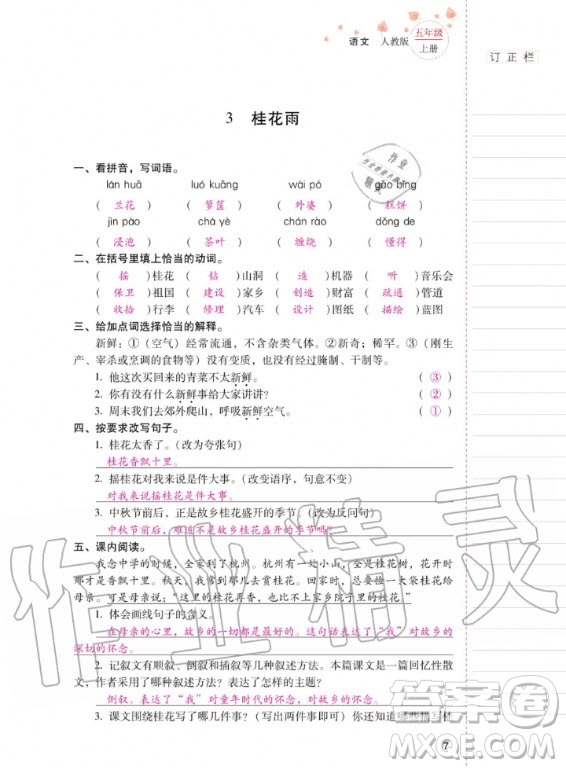 语文 人教版 五年级 上册
订正栏
3 桂花雨
一、看拼音，写词语。
lán huā luó kuāng wài pó gāo bǐng
（ 兰花 ）（ 箩筐 ）（ 外婆 ）（ 糕饼 ）
jìn pào chá yè chán rào dǒng de
（ 浸泡 ）（ 茶叶 ）（ 缠绕 ）（ 懂得 ）
二、在括号里填上恰当的动词。
（ 摇 ）桂花（ 钻 ）山洞（ 造 ）机器（ 听 ）音乐会
（ 保卫 ）祖国（ 建设 ）家乡（ 创造 ）财富（ 疏通 ）管道
（ 收拾 ）行李（ 修理 ）汽车（ 设计 ）图纸（ 描绘 ）蓝图
三、给加点词选择恰当的解释。
新鲜：①（空气）经常流通，不含杂类气体。②新奇；稀罕。③（刚生
产、宰杀或烹调的食物等）没有变质，也没有经过腌制、干制等。
1. 他这次买回来的青菜不太新鲜。（ ③ ）
2. 你有没有什么新鲜事给大家讲讲？（ ② ）
3. 周末我们去郊外爬山，呼吸新鲜空气。（ ① ）
四、按要求改写句子。
1. 桂花太香了。（改为夸张句）
桂花香飘十里。
2. 摇桂花对我来说是件大事。（改变语序，句意不变）
对我来说摇桂花是件大事。
3. 中秋节前后，正是故乡桂花盛开的季节。（改为反问句）
中秋节前后，难道不是故乡桂花盛开的季节吗？
五、课内阅读。
我念中学的时候，全家到了杭州。杭州有一处小山，全是桂花树，花开时
那才是香飘十里。秋天，我常到那儿去赏桂花。回家时，总要捡一大袋桂花给母
亲。可是母亲说：“这里的桂花再香，也比不上家乡院子里的桂花。”
1. 体会画线句子的含义。
在母亲的心里，故乡的一切都是最好的。这句话表达了“我”对故乡的
深切的怀念。
2. 记叙文有顺叙、倒叙和插叙等几种叙述方法。本篇课文是一篇回忆性散
文，作者采用了哪种叙述方法？表达了怎样的主题？
倒叙。表达了“我”对童年时代的怀念，对故乡的怀念。
3. 课文围绕桂花写了哪几件事？（写出两件事即可）你还知道哪些描写桂
7
作业精灵
答案圈